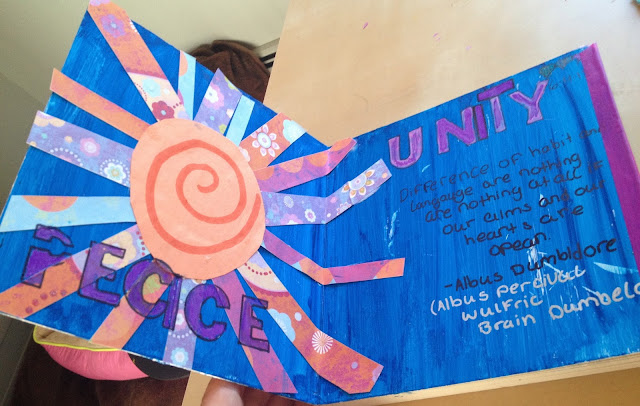 PEaCE
UNITY
Difference of habit and
langauge are nothing
are nothing at all if
our aims and our
hearts are
opean.
-Albus Dumbldore
(Albus Percival
Wulfric
Brain Dumbeld